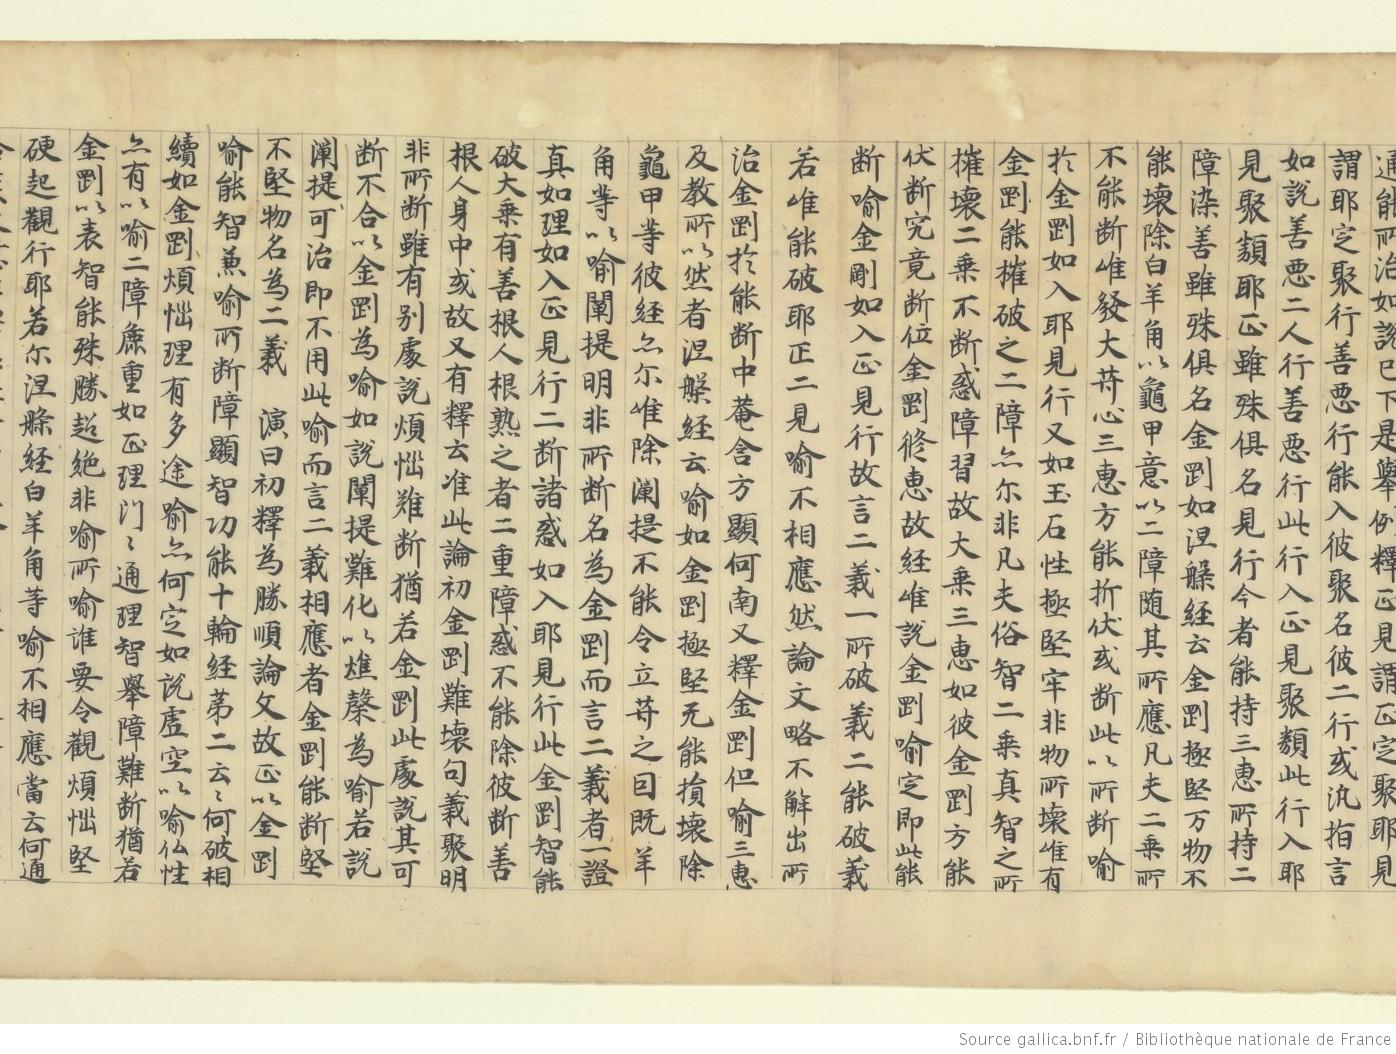 通能所治如說已下是舉例釋正見謂正定聚耶見
謂耶定聚行善悪行能入彼聚名彼二行或汎指言
如說善悪二人行善悪行此行入正見聚類此行入耶
見聚類耶正雖殊俱名見行今者能持三恵所持二
障染善雖殊俱名金剛如涅槃經云金剛極堅万物不
能壞除白羊角以龜甲意以二障随其所應凡夫二乗所
不能断唯發大菩心三恵方能折伏或断此以所断喻
於金剛如入耶見行又如玉石性極堅牢非物所壞唯有
金剛能摧破之二障亦尓非凡夫俗智二乗真智之所
摧壞二乗不断惑障習故大乗三恵如彼金剛方能
伏断究竟断位金剛終恵故經唯說金剛喻定即此能
断喻金剛如入正見行故言二義一所破義二能破義
若唯能破耶正二見喻不相應然論文略不解出所
治金剛於能断中菴含方顯何南又釋金剛但喻三恵
及教所以然者涅槃經云喻如金剛極堅无能損壞除
龜甲䓁彼經亦尔唯除闡提不能令立菩之因既羊
角䓁以喻闡提明非所断名為金剛而言二義者一證
真如理如入正見行二断諸惑如入耶見行此金剛智能
破大乗有善根人根熟之者二重障惑不能除彼断善
根人身中或故又有釋云准此論初金剛難壞句義聚明
非所断雖有别處說煩惱難断猶若金剛此處說其可
断不合以金剛為喻如說闡提難化以燋𦼮為喻若說
闡提可治即不用此喻而言二義相應者金剛能断堅
不堅物名為二義　演曰初釋為勝順論文故正以金剛
喻能智兼喻所断障顯智功能十輪經苐二云〻何破相
續如金剛煩惱理有多途喻亦何定如說虛空以喻仏性
亦有以喻二障麁重如正理門〻通理智舉障難断猶若
金剛以表智能殊勝超絶非喻所喻誰要令觀煩惱堅
硬起觀行耶若尔涅槃經白羊角䓁喻不相應當云何通